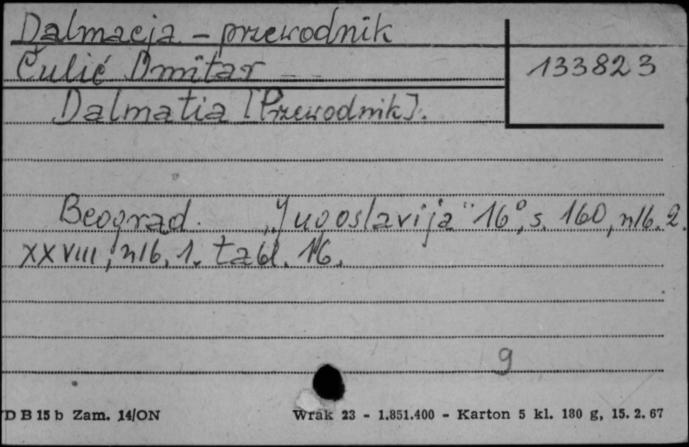 Dalmacja - przewodnik
Čulić Dmitar
133823
Dalmatia [Przewodnik].
Beograd. "Jugoslavija" 16°, s. 160, nlb. 2.
XXVIII, nlb. 1. tabl. 16.
9
D B 15 b Zam. 14/ON
Wrak 23 - 1.851.400 - Karton 5 kl. 180 g, 15. 2. 67